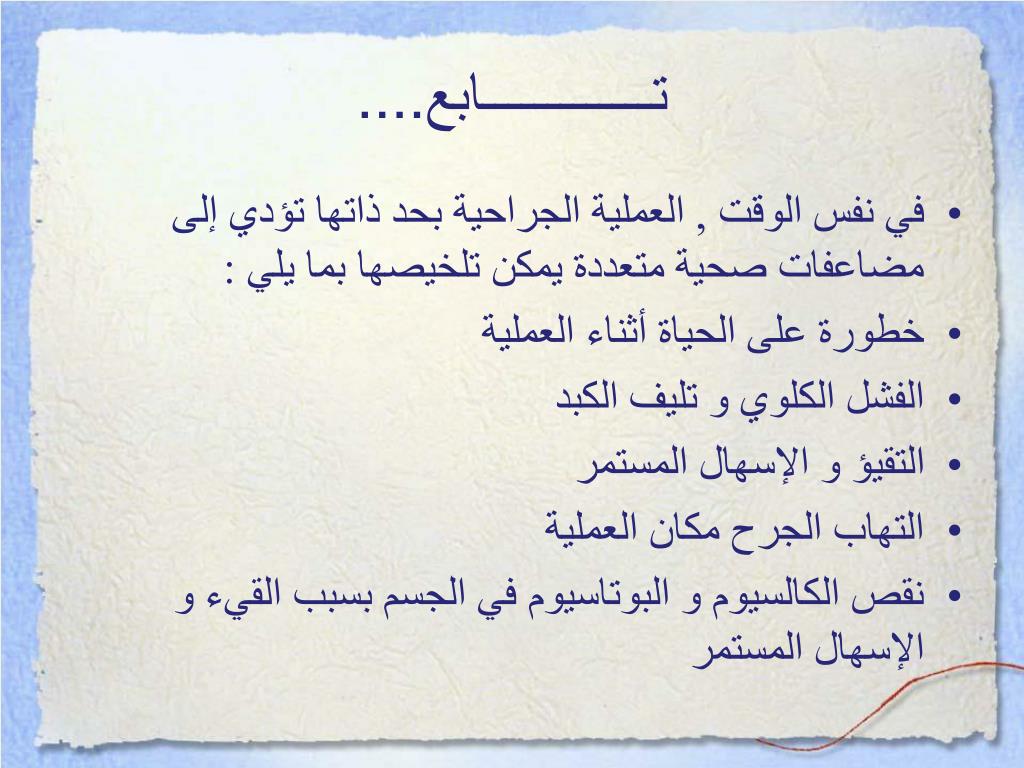 تـــــــــــــابع....
• في نفس الوقت , العملية الجراحية بحد ذاتها تؤدي إلى
مضاعفات صحية متعددة يمكن تلخيصها بما يلي :
• خطورة على الحياة أثناء العملية
• الفشل الكلوي و تليف الكبد
• التقيؤ و الإسهال المستمر
• التهاب الجرح مكان العملية
• نقص الكالسيوم و البوتاسيوم في الجسم بسبب القيء و
الإسهال المستمر